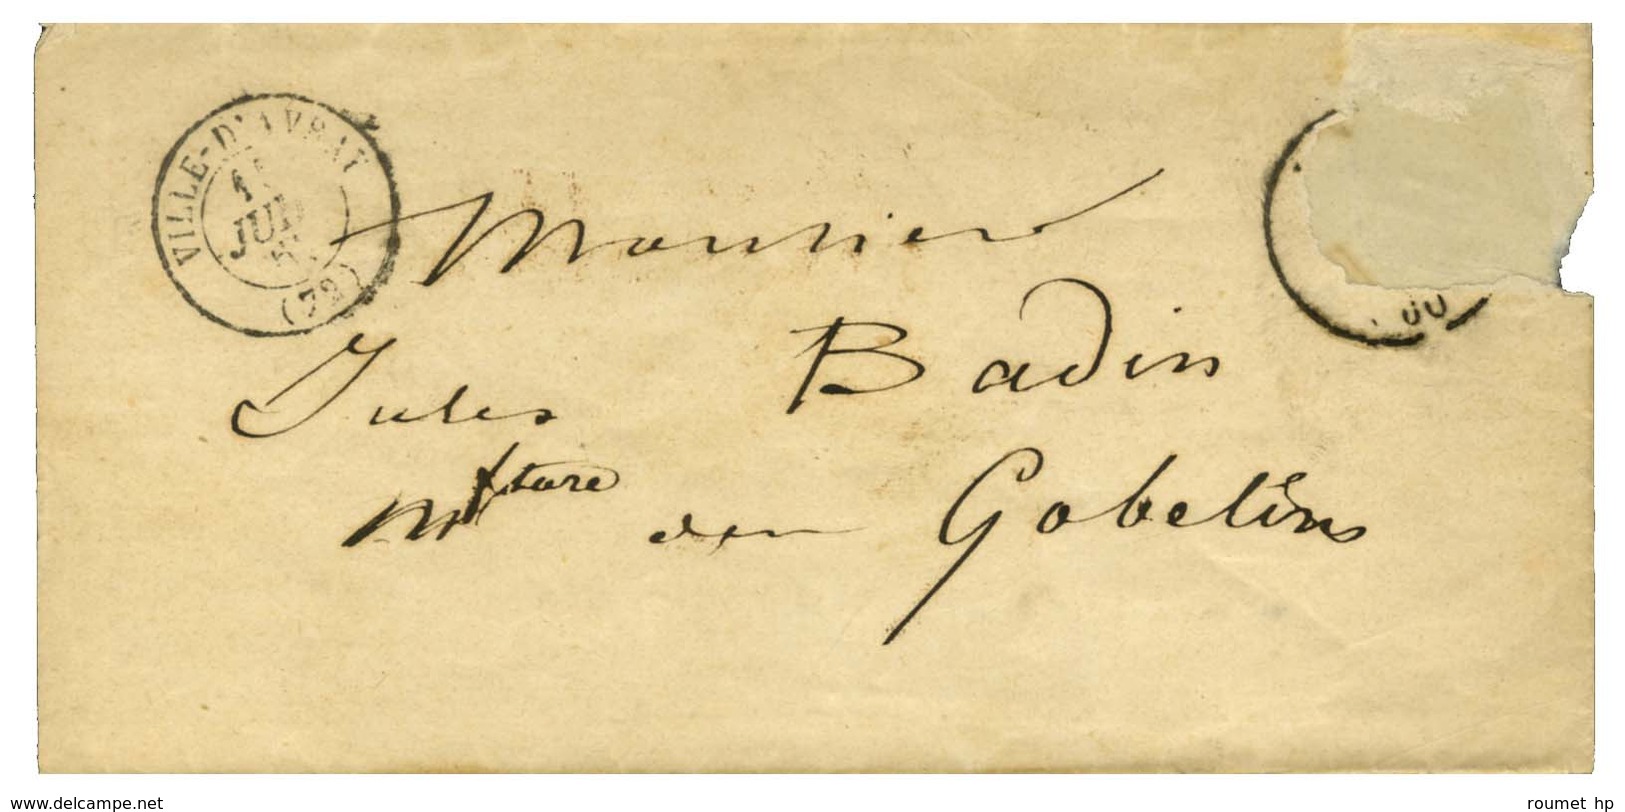 VILLE-D'AVRAY
JUI
(72)
Monsieur
Jules Badin
Mfture des Gobelins
www.delcampe.net
roumet hp